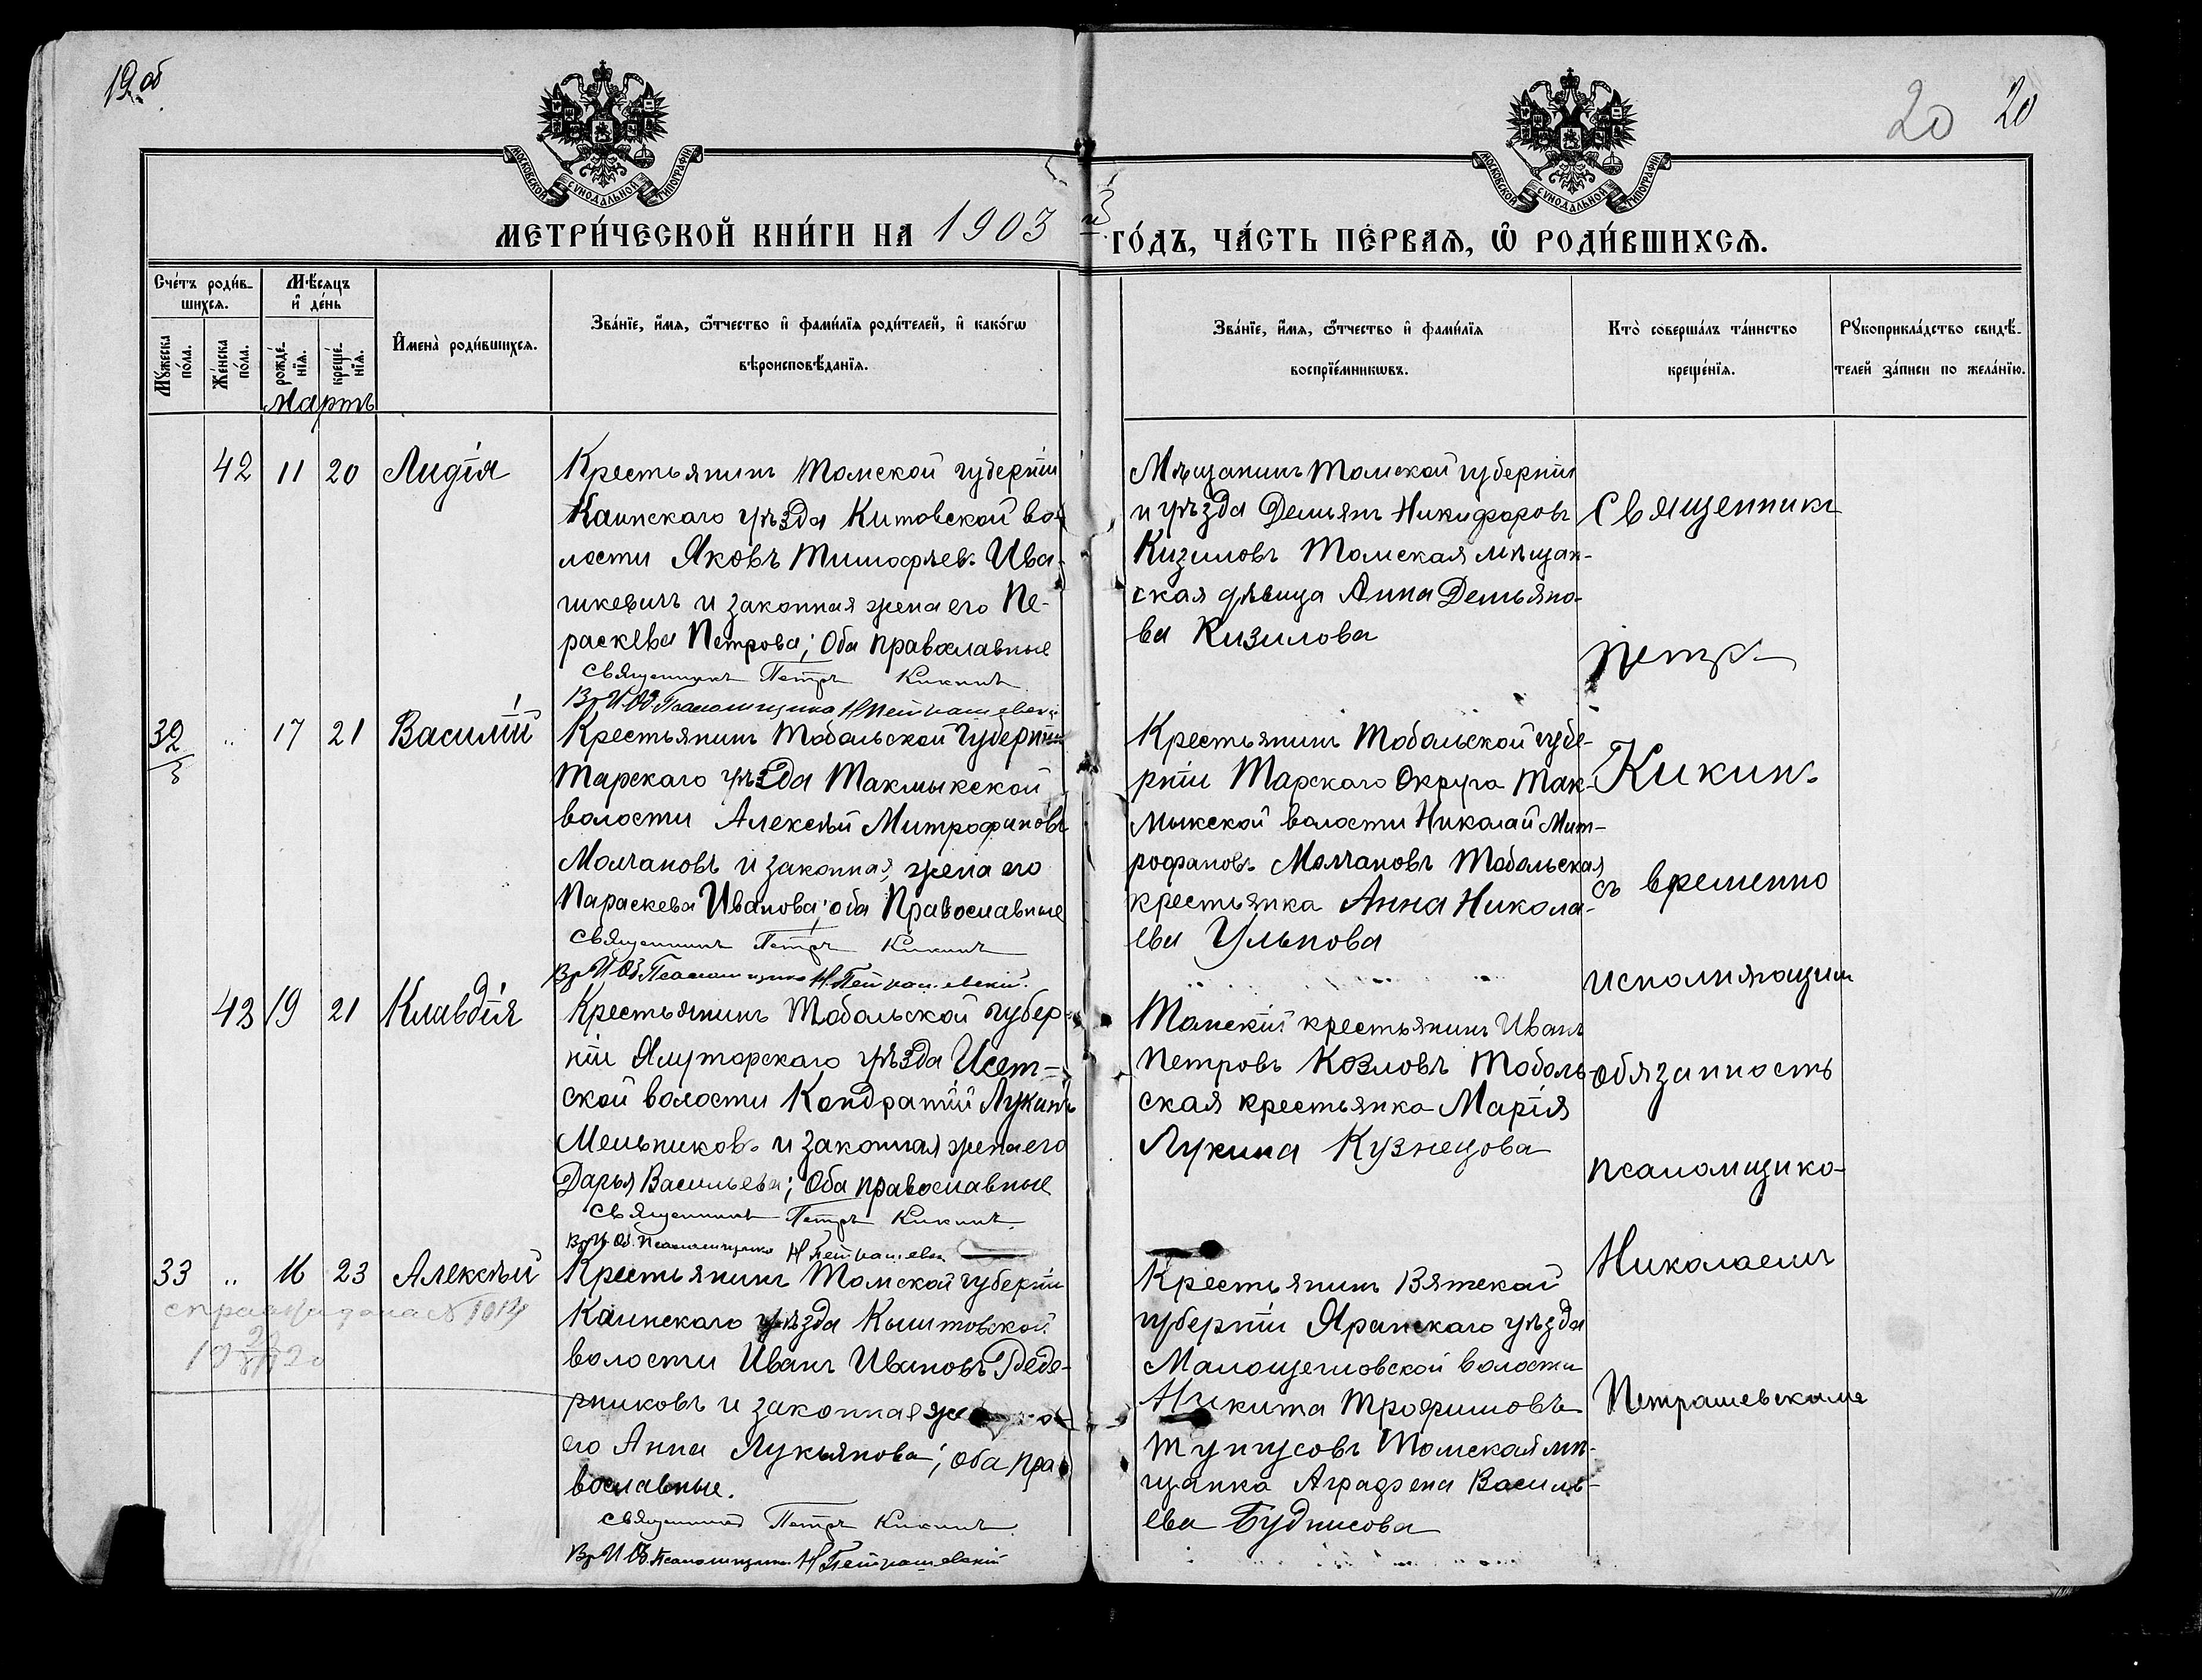 19 об
20 20
МОСКОВСКОЙ СѴНОДАЛЬНОЙ ТИПОГРАФІИ
МОСКОВСКОЙ СѴНОДАЛЬНОЙ ТИПОГРАФІИ
МЕТРИ́ЧЕСКОЙ КНИ́ГИ НА 1903 й ГО́ДЪ, ЧА́СТЬ ПЕ́РВАѦ, Ѡ҆ РОДИ́ВШИХСѦ.
Сче́тъ роди́в-
шихсѧ.
Мѣ́сѧцъ
и҆ де́нь
Мꙋ́жеска
по́ла.
Же́нска
по́ла.
рожде́-
нїѧ.
креще́-
нїѧ.
И҆мена̀ роди́вшихсѧ.
Зва́нїе, и҆́мѧ, ѻ҆́тчество и҆ фами́лїѧ роди́телей, и҆ како́гѡ
вѣроисповѣ́данїѧ.
Зва́нїе, и҆́мѧ, ѻ҆́тчество и҆ фами́лїѧ
воспрїе́мникѡвъ.
Кто̀ соверша́лъ та́инство
креще́нїѧ.
Рꙋкоприкла́дство свидѣ́-
телей за́писи по жела́нїю.
Мартъ
42 11 20 Лидія
Крестьянинъ Томской губерніи
Каинскаго уѣзда Китовской во-
лости Яковъ Тимофѣев. Ива-
шкевичъ и законная жена его Пе-
раскева Петрова; Оба православные
Священникъ Петръ Кикинъ
Вр И. Об. Псаломщика Н Петрашевскій
Мѣщанинъ Томской губерніи
и уѣзда Демьянъ Никифоровъ
Кизиловъ Томская мѣщан-
ская дѣвица Анна Демьяно-
ва Кизилова
32 „ 17 21 Василій
3
Крестьянинъ Тобольской губерніи
Тарскаго уѣзда Такмыкской
волости Алексѣй Митрофановъ
Молчановъ и законная жена его
Параскева Иванова; оба Православные
Священникъ Петръ Кикинъ
Вр И Об. Псаломщика Н. Петрашевскій.
Крестьянинъ Тобольской губе-
рніи Тарскаго Округа Так-
мыкской волости Николай Мит-
рофановъ Молчановъ Тобольская
крестьянка Анна Никола-
ева Ульнова
43 19 21 Клавдія
Крестьянинъ Тобольской губер-
ніи Ялуторскаго уѣзда Исет-
ской волости Кондратій Лукинъ
Мельников. и законная жена его
Дарья Васильева; Оба православные
Священникъ Петръ Кикинъ
Вр И. Об. Псаломщика Н Петрашевскій
Томскій крестьянинъ Иванъ
Петровъ Козловъ Тоболь-
ская крестьянка Марія
Лукина Кузнецова
33 „ 16 23 Алексѣй
справка дана № 1014
Крестьянинъ Томской губерніи
Каинскаго уѣзда Кыштовской
волости Иванъ Ивановъ Беде-
рниковъ и законная же
его Анна Лукьянова; Оба пра-
вославные.
Священникъ Петръ Кикинъ
Вр И Об. Псаломщика Н Петрашевскій
Крестьянинъ Вятской
губерніи Яранскаго уѣзда
Малощегловской волости
Никита Трофимовъ
Тунгусовъ Томская мѣ-
щанка Аграфена Василь-
ева Буднисова
Священникъ
Петръ
Кикин.
съ временно
исполняющим
обязанность
псаломщика
Николаемъ
Петрашевскиме